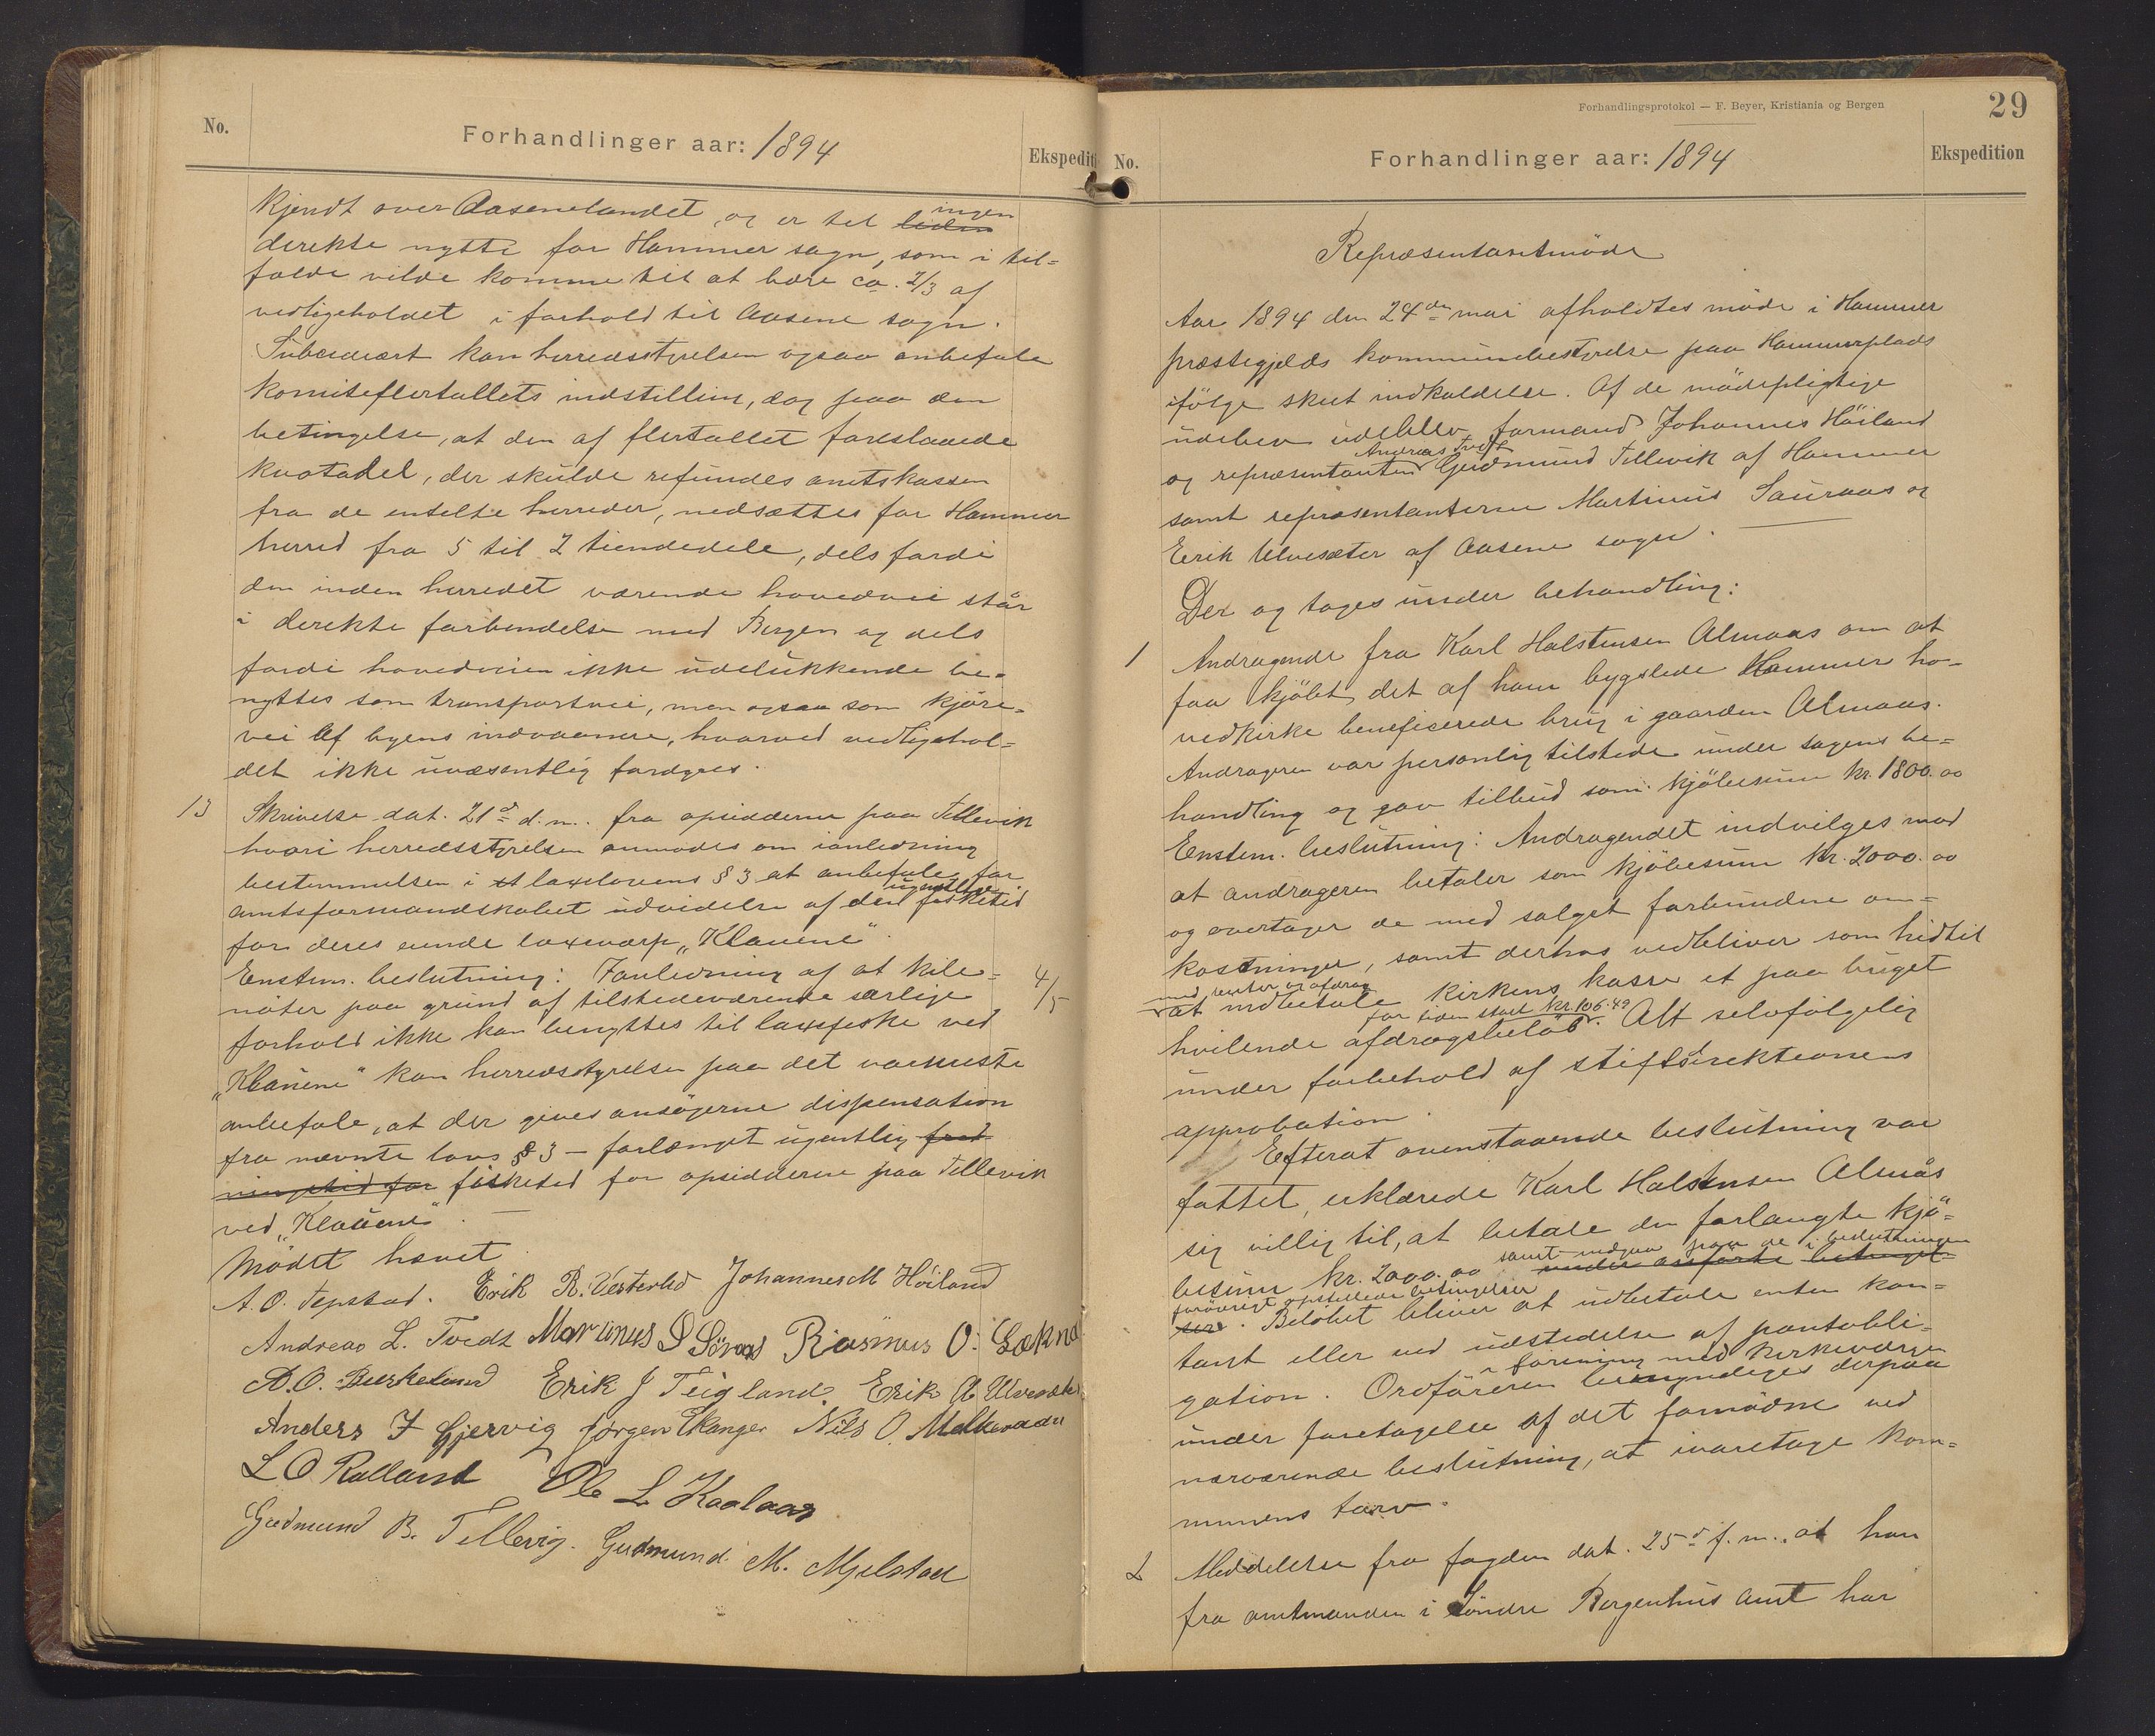 No.
Forhandlinger aar: 1894
Ekspedit
kjendt over Aasenelandet og er tel liden ingen
derekte nytte for Hammer sogn, som i til=
fælde vilde komme til at bære ca. 2/3 af
vedligeholdet i forhold til Aasene sogn.
Subsidiært kan herredsstyrelsen ogsaa anbefale
komiteflertallets indstilling, dog paa den
betingelse, at den af flertallet foreslaaede
kvotadel, der skulde refunderes amtskassen
fra de enkelte herreder, nedsættes for Hammer
herred fra 5 til 2 tiendedele, dels fordi
den inden herredet værende hovedvei står
i derekte forbendelse med Bergen og dels
fordi hovedveien ikke udelukkende be=
nyttes som transportvei, men ogsaa som kjøre=
vei af byens indvaanere, hvorved vedligehol=
det ikke uvæsentlig fordyres.
13 Skrivelse dat. 21d d.m. fra opsidderne paa Tellevik
hvori herredsstyrelsen anmodes om i anledning
bestemmelsen i laxelovens § 3 at anbefale for
amtsformandskabet udvidelse af den ugentlige fisketid
for deres eiende laxevarp „Klauene".
Enstem. beslutning: I anledning af at kile=
nøter paa grund af tilstedeværende særlige
4/5
forhold ikke kan benyttes til laxefiske ved
„Klauene" kan herredsstyrelsen paa det varmeste
anbefale, at der gives ansøgerne dispensation
fra nævnte lovs § 3 – forlænget ugentlig fred
ningstid for fisketid for opsidderne paa Tellevik
ved „Klauene".
Mødet hævet.
A. O. Tepstad. Erik R. Vesterlid Johannes M Höiland
Andreas L. Tvedt Martinus S Söraas Rasmus O. Gækna
A. O. Birkeland Erik J Teigland. Erik A. Ulvesæte
Anders I Gjervig Jørgen Skanger Nils O. Melkeraaen
L O Rolland Ole L Kaalaas
Gudmund B. Tellevig. Gudmund M. Mjelstad
Forhandlingsprotokol — F. Beyer, Kristiania og Bergen
29
No.
Forhandlinger aar: 1894
Ekspedition
Repræsentantmöde
Aar 1894 den 24de mai afholdtes møde i Hammer
præstegjælds kommunebestyrelse paa Hammerplads
ifölge skeet indkaldelse. Af de mödepligtige
udeblev formand Johannes Höiland
Andreas Tvedt
og repræsentanten Gudmund Tellevik af Hammer
samt repræsentanterne Martinus Sauraas og
Erik Ulvesæter af Aasene sogn.
Der og toges under behandling:
1 Andragende fra Karl Halstensen Almaas om at
faa kjöbt det af ham bygslede Hammer ho-
vedkirke benefiserede brug i gaarden Almaas.
Andrageren var personlig tilstede under sagens be=
handling og gav tilbud som kjöbesum kr. 1800.00
Enstem. beslutning: Andragendet indvilges mod
at andrageren betaler som kjöbesum kr. 2000.00
og overtager de med salget forbundne om=
kostninger, samt derhos vedbliver som hidtil
med renter og afdrag
at indbetale kirkens kasse et paa bruget
for tiden stort kr. 106.49
hvilende afdragsbelöb. Alt selvfölgelig
under forbehold af stiftsdirektionens
approbation.
Efterat ovenstaaende beslutning var
fattet, erklærede Karl Halstensen Almås
sig villig til, at betale den forlangte kjö=
samt indgaa paa de i beslutningen
besum kr. 2000.00 under anförte betingel-
forövrigt opstillede betingelser
ser. Belöbet bliver at udbetale enten kon=
tant eller ved udstedelse af pantobli=
i forening med kirkeværgen
gation. Ordföreren bemyndiges derpaa
under foretagelse af det fornödne ved
nærværende beslutning, at ivaretage kom=
munens tarv.
2 Meddelelse fra fogden dat. 25d f.m., at han
fra amtmanden i Söndre Bergenhus amt har